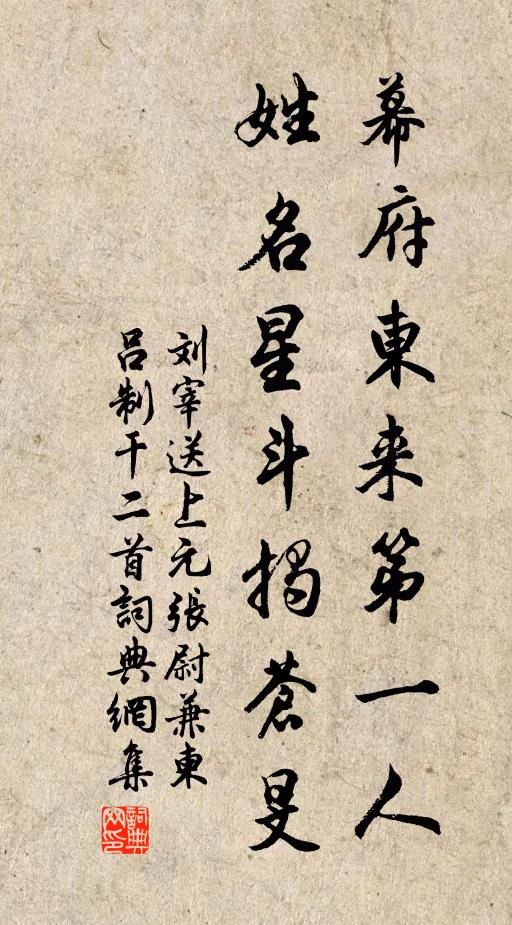 幕府東来第一人
姓名星斗揭蒼旻
刘宰送上元張尉兼東
呂制干二首詞典網集
詞典
网印